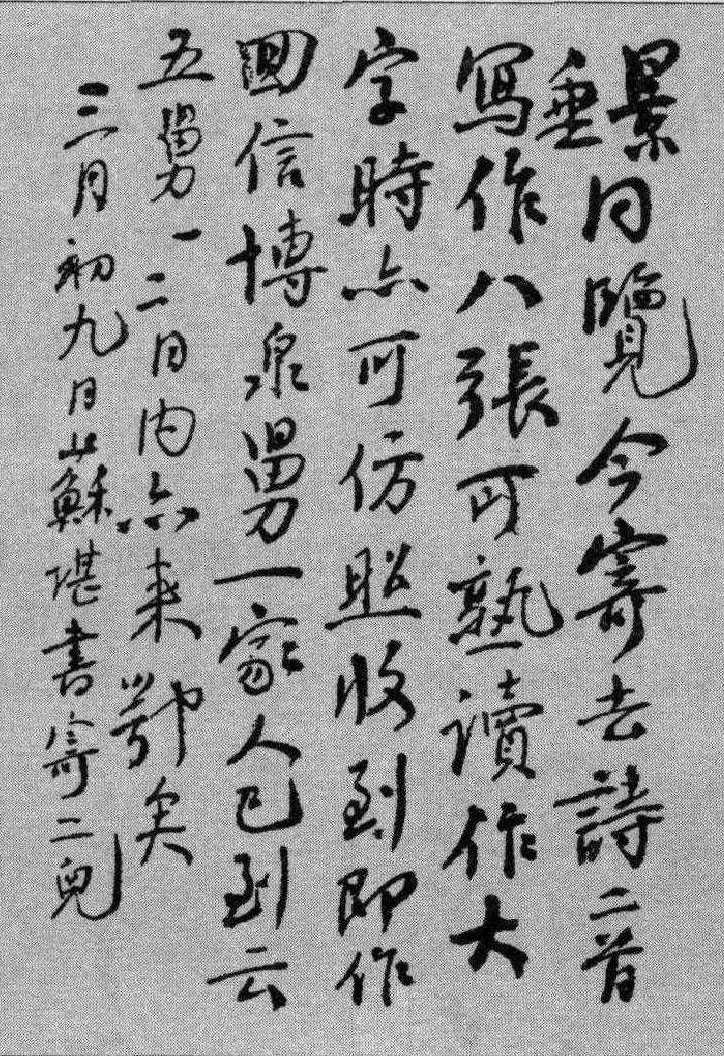 景垂同覽今寄去詩二首
寫作八張可熟讀作大
字時亦可仿照收到即作
回信博泉舅一家人已到云
五舅一二日内亦来鄂矣
三月初九日蘇堪書寄二兒